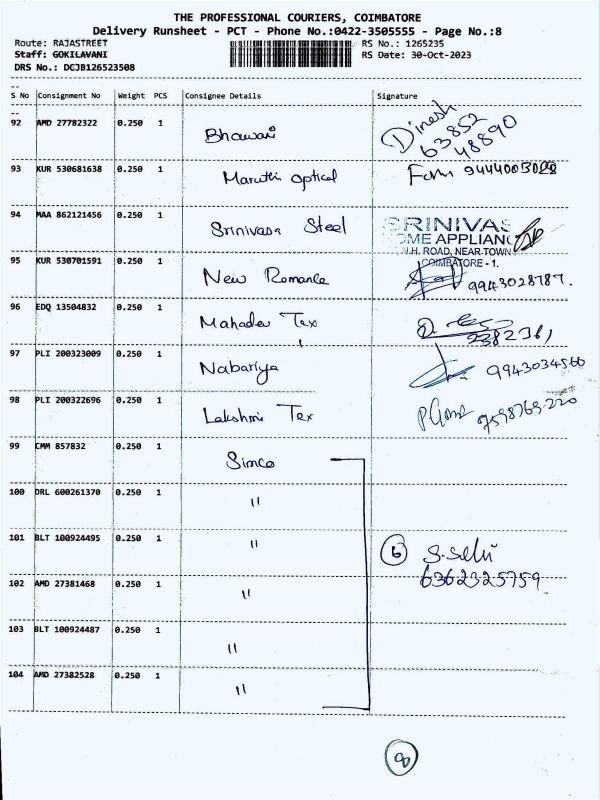 THE PROFESSIONAL COURIERS, COIMBATORE
Delivery Runsheet - PCT - Phone No.:0422-3505555 - Page No.:8
Route: RAJASTREET
RS No.: 1265235
Staff: GOKILAVANI
RS Date: 30-Oct-2023
DRS No.: DCJB126523508
S No Consignment No Weight PCS Consignee Details Signature
92 AMD 27782322 0.250 1 Bhawani Dinesh
63852
48890
93 KUR 530681638 0.250 1 Maruthi Optical
94 MAA 862121456 0.250 1 Srinivasa Steel SRINIVAS
OME APPLIANC
N.H. ROAD, NEAR TOWN
COIMBATORE - 1.
95 KUR 530701591 0.250 1 New Romance 9943028787.
96 EDQ 13504832 0.250 1 Mahadev Tex
2382361
97 PLI 200323009 0.250 1 Nabariya 9943034566
98 PLI 200322696 0.250 1 Lakshmi Tex
99 CMM 857832 0.250 1 Simco
100 DRL 600261370 0.250 1 "
101 BLT 100924495 0.250 1 " 6 S. Selvi
6362325759
102 AMD 27381468 0.250 1 "
103 BLT 100924487 0.250 1 "
104 AMD 27382528 0.250 1 "
8